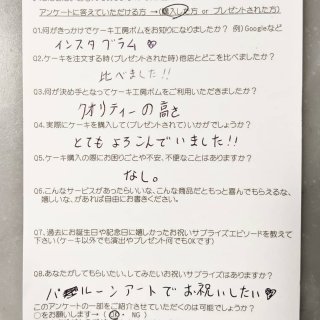 アンケートに答えていただける方 →（購入した方 or プレゼントされた方）
01.何がきっかけでケーキ工房ボムをお知りになりましたか？ 例）Googleなど
インスタグラム♡
02.ケーキを注文する時(プレゼントされた時)他店とどこを比べましたか？
比べました!!
03.何が決め手となってケーキ工房ボムをご利用いただきましたか？
クオリティーの高さ
04.実際にケーキを購入して(プレゼントされて)いかがでしょうか？
とてもよろこんでいました!!
05.ケーキ購入の際にお困りごとや不安、不便なことはありますか？
なし。
06.こんなサービスがあったらいいな、こんな商品だともっと喜んでもらえるな、
嬉しいな、があれば自由にお書きください。
07.過去にお誕生日や記念日に嬉しかったお祝いサプライズエピソードを教えて
下さい(ケーキ以外でも演出やプレゼント何でもOKです)
08.あなたがしてもらいたい、してみたいお祝いサプライズはありますか？
バルーンアートでお祝いしたい♡
このアンケートの一部をご紹介させていただくのは可能でしょうか？
○をお願いします→（ OK ・ NG ）